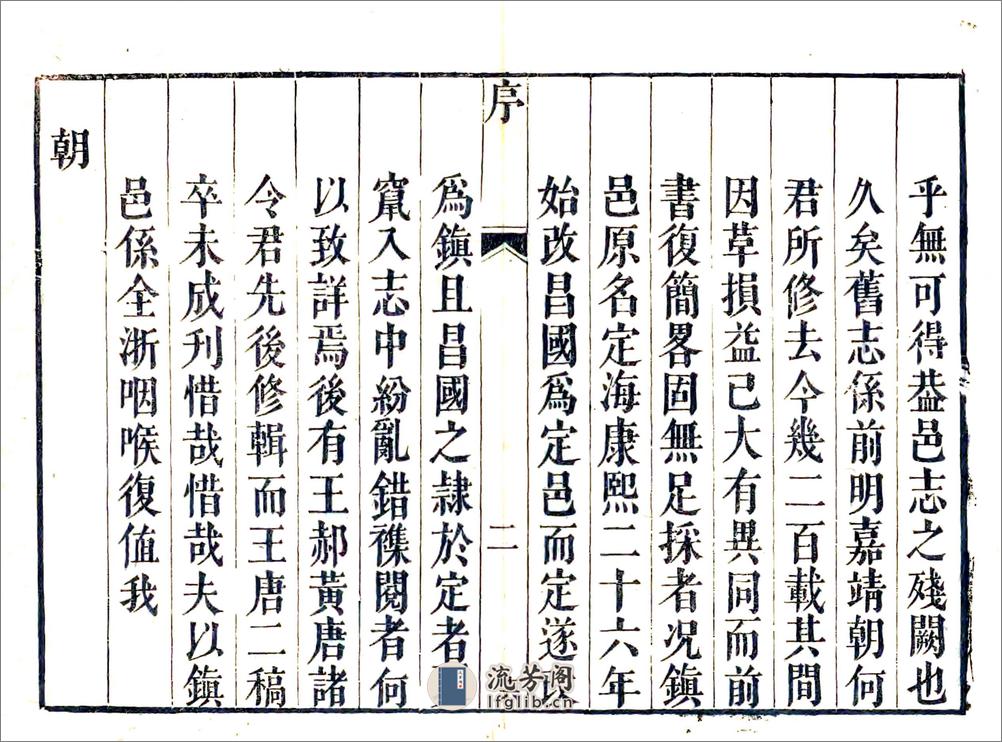 乎無可得葢邑志之殘闕也
久矣舊志係前明嘉靖朝何
君所修去今幾二百載其間
因革損益已大有異同而前
書復簡畧固無足採者况鎮
邑原名定海康熙二十六年
始改昌國為定邑而定遂
序
二
爲鎮且昌國之隷於定者
竄入志中紛亂錯襍閱者何
以致詳焉後有王郝黃唐諸
令君先後修輯而王唐二稿
卒未成刊惜哉惜哉夫以鎮
邑係全浙咽喉復值我
朝
流芳阁
lfglib.cn